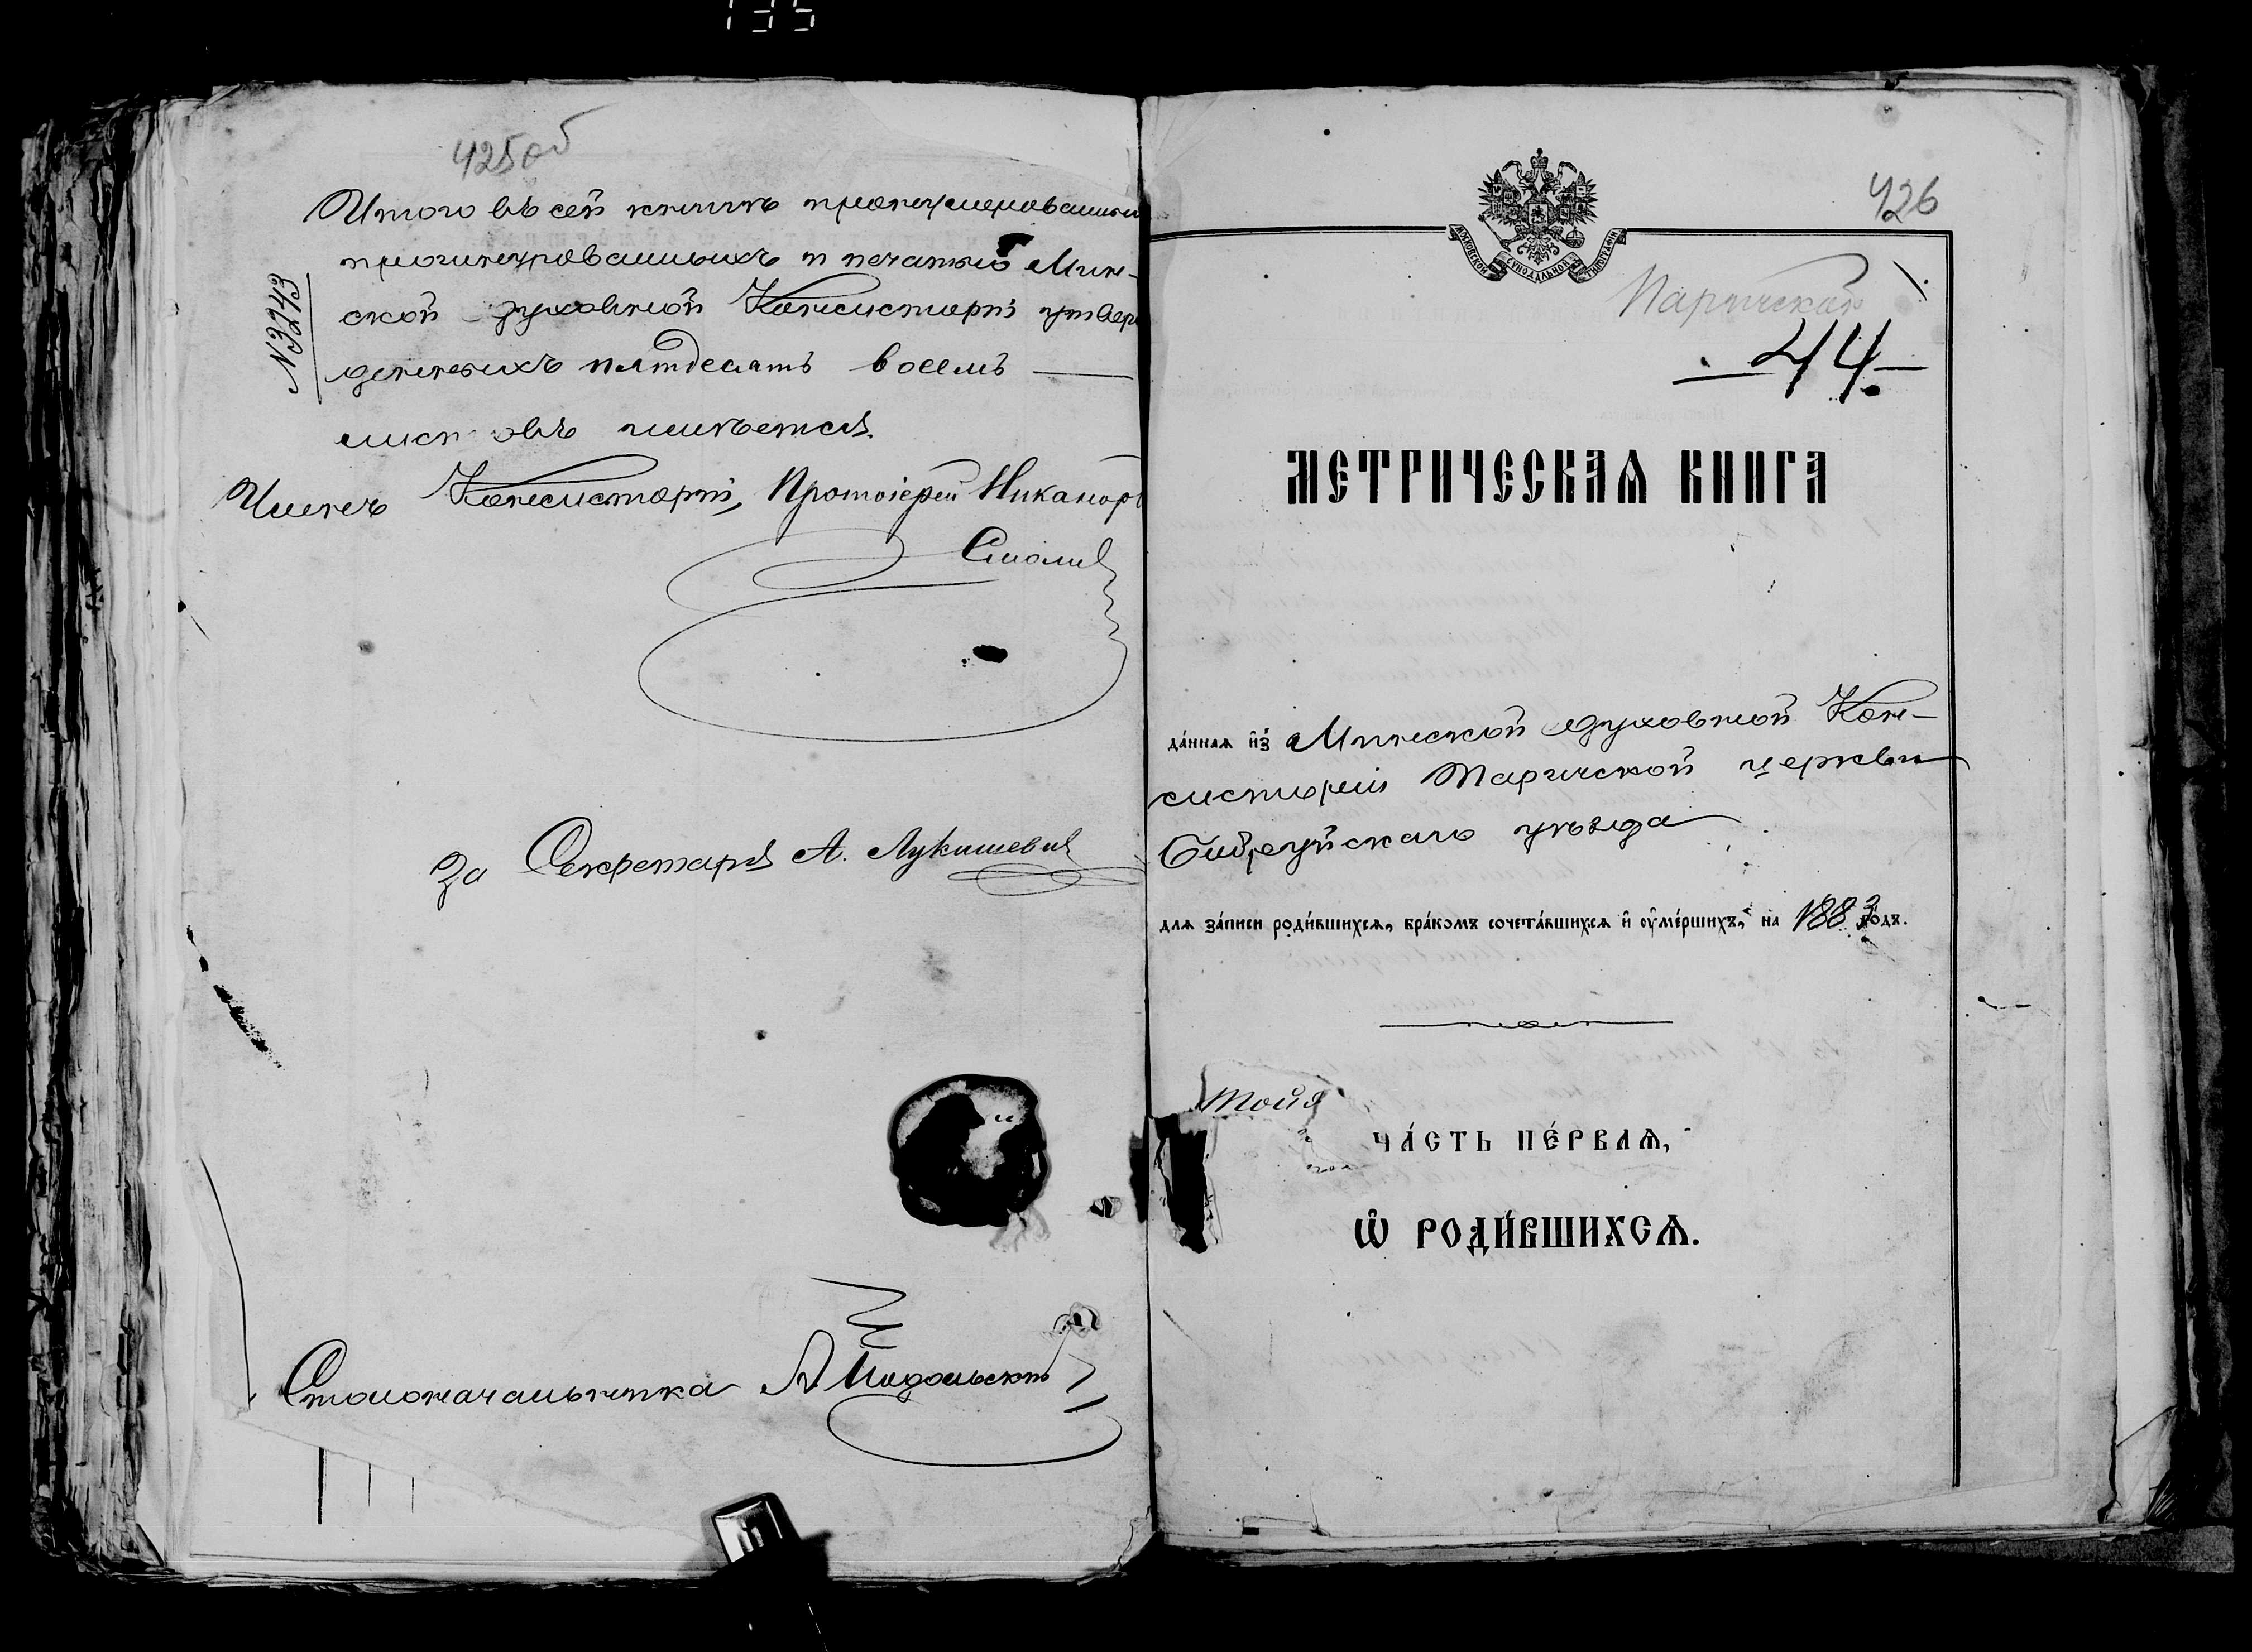 135
425об
Итого въ сей книгѣ пронумерованных
прошнурованныхъ и печатью Мин-
ской духовной Консисторіи утверж
денныхъ пятдесятъ восемь
листовъ имѣется.
№3243
Членъ Консисторіи, Протоіерей Никаноръ
Смолич
За Секретаря А. Лукашевич
Столоначальника А Подольскій
426
МОСКОВСКОЙ СѴНОДАЛЬНОЙ ТИПОГРАФІИ
Паричская
44.
МЕТРИЧЕСКАѦ КНИГА
да́ннаѧ и҆з̾ Минской духовной Кон-
систоріи Паричской церкви
Бобруйскаго уѣзда
для за́писи роди́вшихсѧ, бра́комъ сочета́вшихсѧ и҆ ᲂу҆ме́ршихъ, на 1883 го́дъ.
тоия
ЧА́СТЬ ПЕ́РВАѦ,
Ѽ РОДИ́ВШИХСѦ.